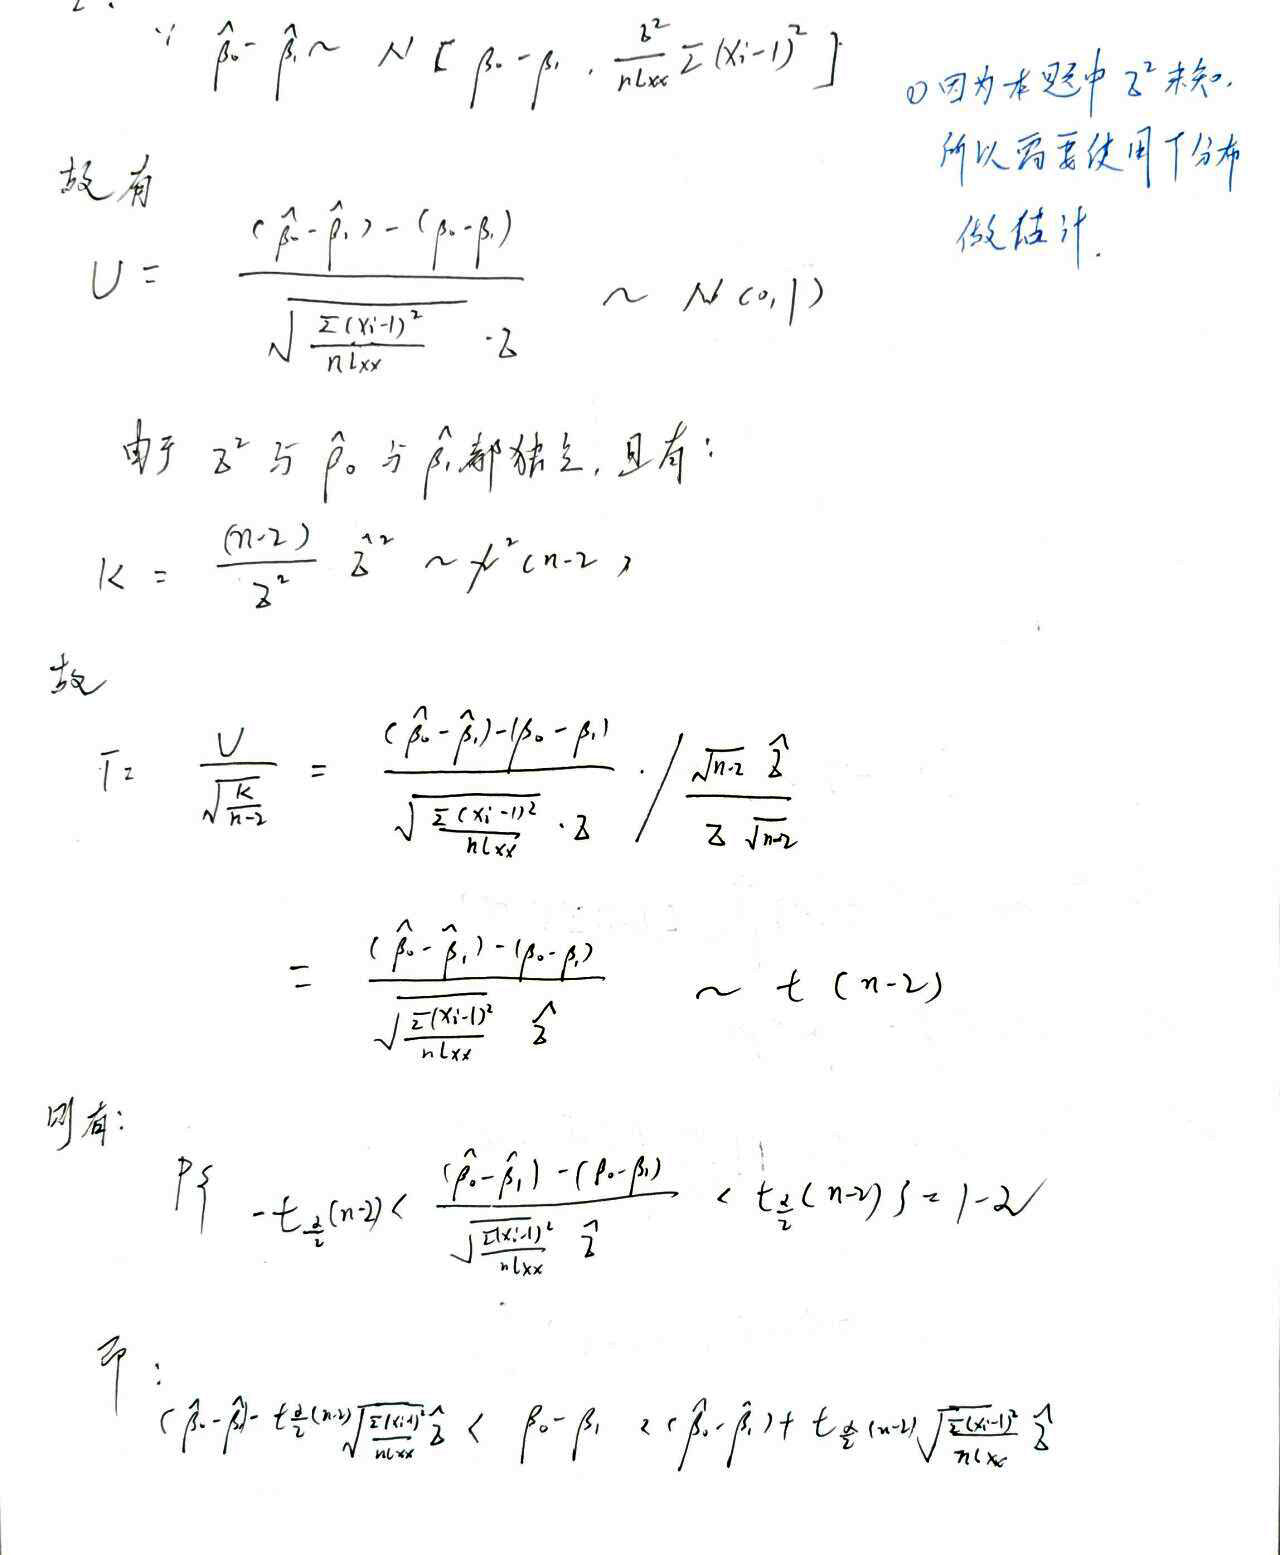 2.
∵ β̂₀ - β̂₁ ~ N [ β₀ - β₁ , σ²/(n lxx) Σ(xi-1)² ]
①因为本题中 σ² 未知.
所以需要使用 T 分布
做估计.
故有
U = ((β̂₀ - β̂₁) - (β₀ - β₁)) / (√(Σ(xi-1)²/(n lxx)) · σ) ~ N(0,1)
由于 σ² 与 β̂₀ 与 β̂₁ 都独立, 且有:
K = (n-2)/σ² σ̂² ~ χ²(n-2)
故
T = U/√(K/(n-2)) = ((β̂₀ - β̂₁) - (β₀ - β₁)) / (√(Σ(xi-1)²/(n lxx)) · σ) · / (√(n-2) σ̂)/(σ √(n-2))
= ((β̂₀ - β̂₁) - (β₀ - β₁)) / (√(Σ(xi-1)²/(n lxx)) σ̂) ~ t (n-2)
则有:
P{ -t_{α/2}(n-2) < ((β̂₀ - β̂₁) - (β₀ - β₁)) / (√(Σ(xi-1)²/(n lxx)) σ̂) < t_{α/2}(n-2) } = 1-α
即:
(β̂₀ - β̂₁) - t_{α/2}(n-2) √(Σ(xi-1)²/(n lxx)) σ̂ < β₀ - β₁ < (β̂₀ - β̂₁) + t_{α/2}(n-2) √(Σ(xi-1)²/(n lxx)) σ̂